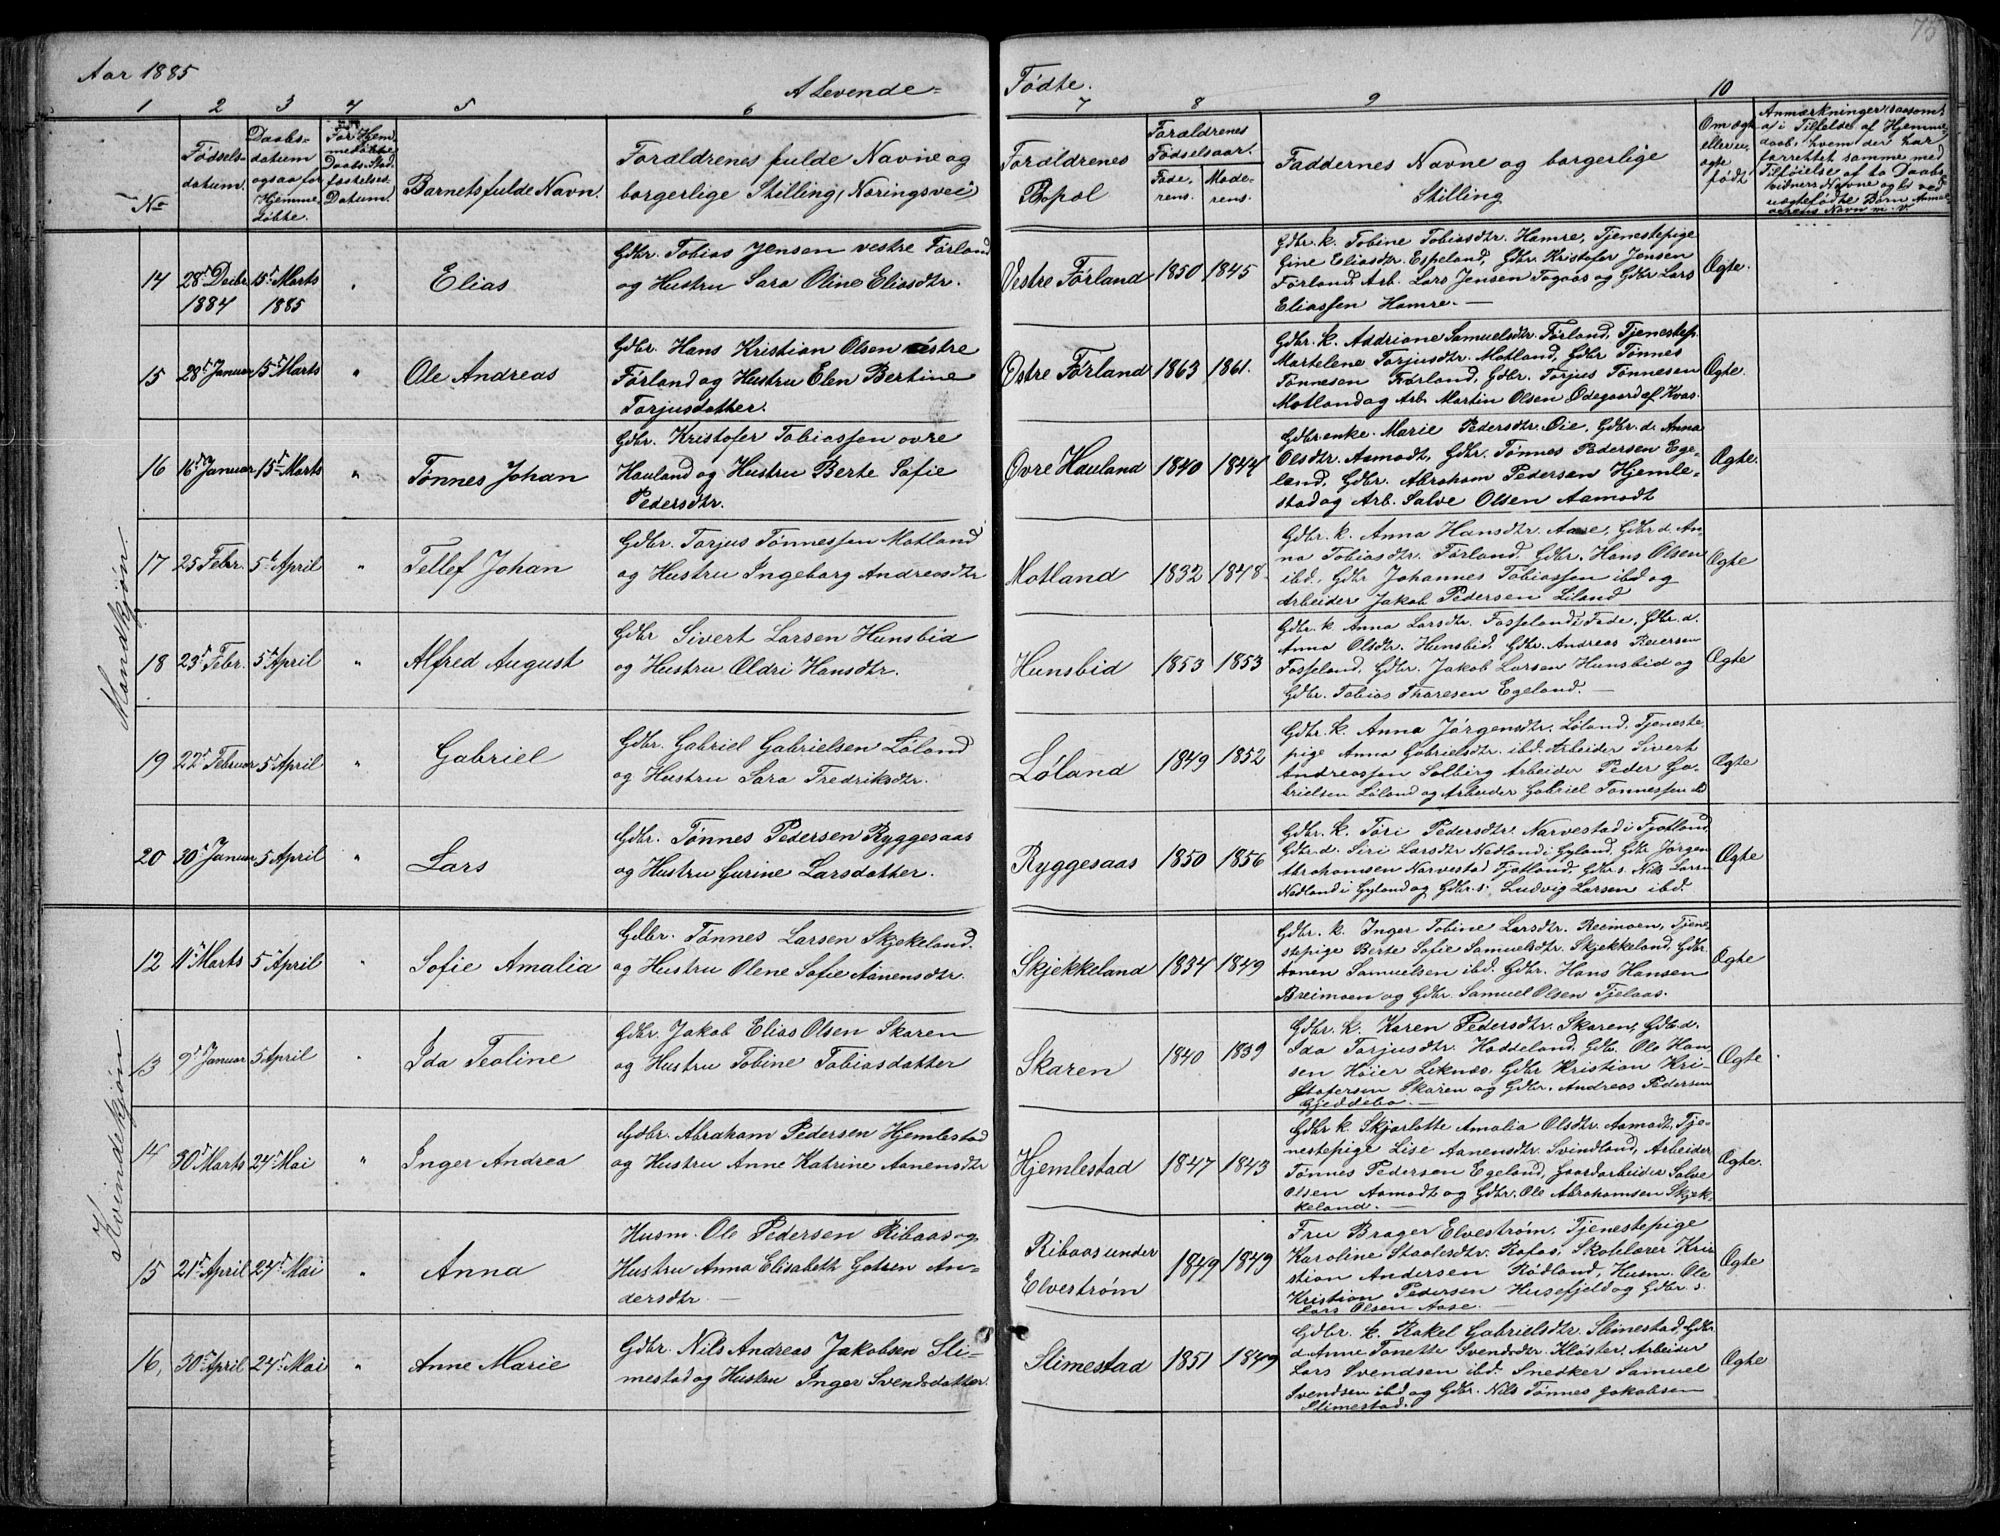 Aar 1885
A Levende Fødte.
73
1 2 3 4 5 6 7 8 9 10
No
Fødsels-
datum.
Daabs-
datum
ogsaa for
Hjemme-
døbte.
For Hjem-
medøbte
Daabs Stad-
fæstelses
Datum.
Barnets fulde Navn.
Forældrenes fulde Navne og
borgerlige Stilling, (Næringsvei)
Forældrenes
Bopæl
Forældrenes
Fødselsaar.
Fade-
rens.
Mode-
rens.
Faddernes Navne og borgerlige
Stilling
Om ægte
eller u-
ægte
født
Anmærkninger, saasom
i Tilfælde af Hjemme-
daab, hvem der har
forrettet samme med
Tilføielse af to Daabs-
vidners Navne og ved
uægtefødte Børn Anmel-
derens Navn m. v.
Mandkjøn.
14 28de Decbr. 15de Marts " Elias
1884 1885
Gdbr. Tobias Jensen vestre Førland
og Hustru Sara Oline Eliasdtr.
Vestre Førland 1850 1845
Gdbr. k. Tobine Tobiasdtr. Hamre, Tjenestepige
Gine Eliasdtr. Espeland, Gdbr. Kristofer Jensen
Førland, Arb. Lars Jensen Togaas og Gdbr. Lars
Eliassen Hamre. —
Ægte.
15 28de Januar 15de Marts " Ole Andreas
Gdbr. Hans Kristian Olsen østre
Førland og Hustru Elen Bertine
Torjusdatter.
Østre Førland 1863 1861.
Gdbr. k. Addriane Samuelsdtr. Førland, Tjenestep.
Martelene Torjusdtr. Motland, Gdbr Tønnes
Tønnesen Førland, Gdbr. Torjus Tønnesen
Motland og Arb. Martin Olsen Ødegaard af Kvas.
Ægte.
16 16de Januar 15de Marts " Tønnes Johan
Gdbr. Kristofer Tobiassen øvre
Hauland og Hustru Berte Sofie
Pedersdtr.
Øvre Hauland 1840 1844
Gdbr. enke Marie Pedersdtr. Øie, Gdbr. d. Anna
Olsdtr. Aamodt, Gdbr. Tønnes Pedersen Ege-
land, Gdbr. Abraham Pedersen Hjemle-
stad og Arb. Salve Olsen Aamodt
Ægte.
17 25 Febr. 5te April " Tellef Johan
Gdbr. Torjus Tønnessen Motland
og Hustru Ingeborg Andreasdtr
Motland 1832 1848.
Gdbr. k. Anna Hansdtr. Aase, Gdbr. d. An-
na Tobiasdtr. Førland, Gdbr. Hans Olsen
ibd., Gdbr Johannes Tobiassen ibd og
Arbeider Jakob Pedersen Liland
Ægte
18 23de Febr. 5te April " Alfred August
Gdbr Sivert Larsen Hunsbid
og Hustru Oldri Hansdtr.
Hunsbid 1853 1853
Gdbr. k. Anna Larsdtr. Fosseland i Fede, Gbr. d.
Anna Olsdtr. Hunsbid, Gdbr. Andreas Reiersen
Fosseland, Gdbr. Jakob Larsen Hunsbid og
Gdbr. Tobias Tharesen Egeland. —
Ægte
19 22de Februar 5 April " Gabriel
Gdbr. Gabriel Gabrielsen Løland
og Hustru Sara Fredriksdtr.
Løland 1849 1852
Gdbr. k. Anna Jørgensdtr. Løland, Tjeneste-
pige Anna Gabrielsdtr. ibd. Arbeider Sivert
Andreassen Solberg Arbeider Peder Ga-
brielsen Løland og Arbeider Gabriel Tønnessen ibd
Ægte
20 30te Januar 5 April " Lars
Gdbr. Tønnes Pedersen Ryggesaas
og Hustru Gurine Larsdatter.
Ryggesaas 1850 1856
Gdbr. k. Tøri Pedersdtr. Narvestad i Fjotland,
Gdbr. d. Siri Larsdtr Nedland i Gyland, Gdbr Jørgen
Abrahamsen Narvestad Fjotland, Gdbr. s. Nils Larsen
Nedland i Gyland og Gdbr. s. Ludvig Larsen ibd.
Ægte
Kvindekjøn.
12 11te Marts 5 April " Sofie Amalia
Gdbr. Tønnes Larsen Skjekeland.
og Hustru Olene Sofie Aanensdtr.
Skjekkeland 1834 1849
Gdbr. k. Inger Tobine Larsdtr. Reimoen, Tjene-
stepige Berte Sofie Samuelsdtr. Skjekkeland, Gdbr.
Aanen Samuelsen ibd. Gdbr. Hans Hansen
Breimoen og Gdbr. Samuel Olsen Tjelaas.
Ægte
13 9de Januar 5 April " Ida Teoline
Gdbr. Jakob Elias Olsen Skaren
og Hustru Tobine Tobiasdatter
Skaren 1840 1839
Gdbr. k. Karen Pedersdtr. Skaren, Gdb. d.
Ida Torjusdtr. Haddeland, Gdb. Ole Han-
sen Høier Leknes, Gdbr Kristian Kri-
stofersen Skaren og Gdbr. Andreas Pedersen
Gjeddebo. —
Ægte
14 30te Marts 24de Mai " Inger Andrea
Gdbr. Abraham Pedersen Hjemlestad
og Hustru Anne Katrine Aanensdtr
Hjemlestad 1847 1843
Gdbr k. Skjarlotte Amalia Olsdtr. Aamodt, Tje-
nestepige Lise Aanensdtr. Svindland, Arbeider
Tønnes Pedersen Egeland, Gaardarbeider Salve
Olsen Aamodt og Gdbr. Ole Abrahamsen Skjek-
keland. —
Ægte.
15 21de April 24de Mai " Anna
Husm. Ole Pedersen Ribaas og
Hustru Anna Elisabeth An-
dersdtr. —
Ribaas under
Elvestrøm
1849 1849
Fru Brager Elvestrøm, Tjenestepige
Karoline Staalesdtr. Rafos, Skolelærer Kri-
stian Andersen Rødland, Husm. Ole
Kristian Pedersen Husefjeld og Gdbr. s.
Lars Olsen Aase. —
Ægte
16, 30te April 24de Mai " Anne Marie
Gdbr. Nils Andreas Jakobsen Sli-
mestad og Hustru Inger Svendsdatter.
Slimestad 1851 1849
Gdbr. k. Rakel Gabrielsdtr. Slimestad, Gdbr.
d Anne Tonette Svendsdtr. Kloster, Arbeider
Lars Svendsen ibd. Snedker Samuel
Svendsen ibd og Gdbr. Nils Tønnes Jakobsen
Slimestad.
Ægte